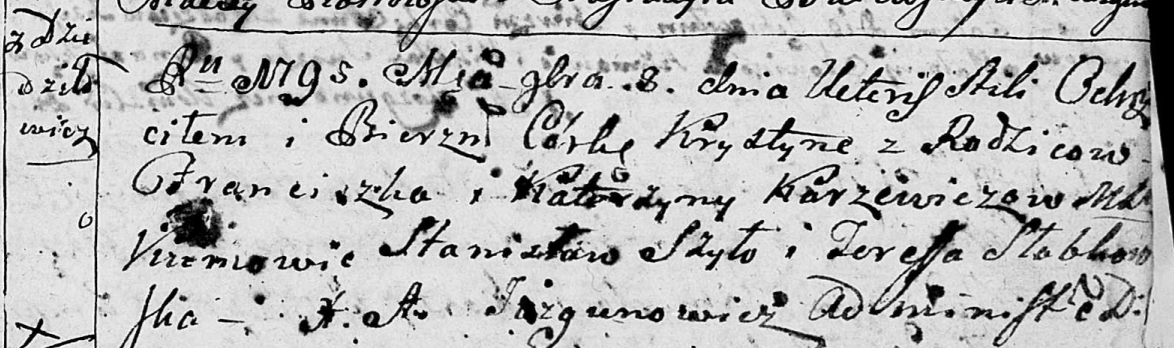 z Dzie
dziło
wicz
Ru 1795. Mca 9bra 8. dnia Veteris Stili Ochrz
ciłem i Bierzm Córkę Krystynę z Rodziców
Franciszka i Katarzyny Karzewiczow
Kumowie Stanisław Szyło i Teressa Stabkow
ska – X. A. Jozgunowicz Administ D: